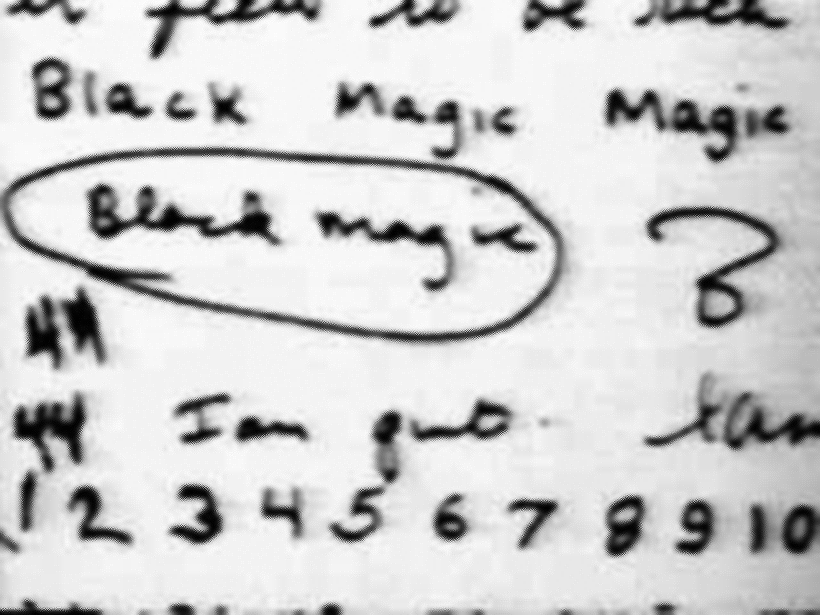 to be such
Black Magic Magic
Black magic ?
44
44 I am quit
1 2 3 4 5 6 7 8 9 10